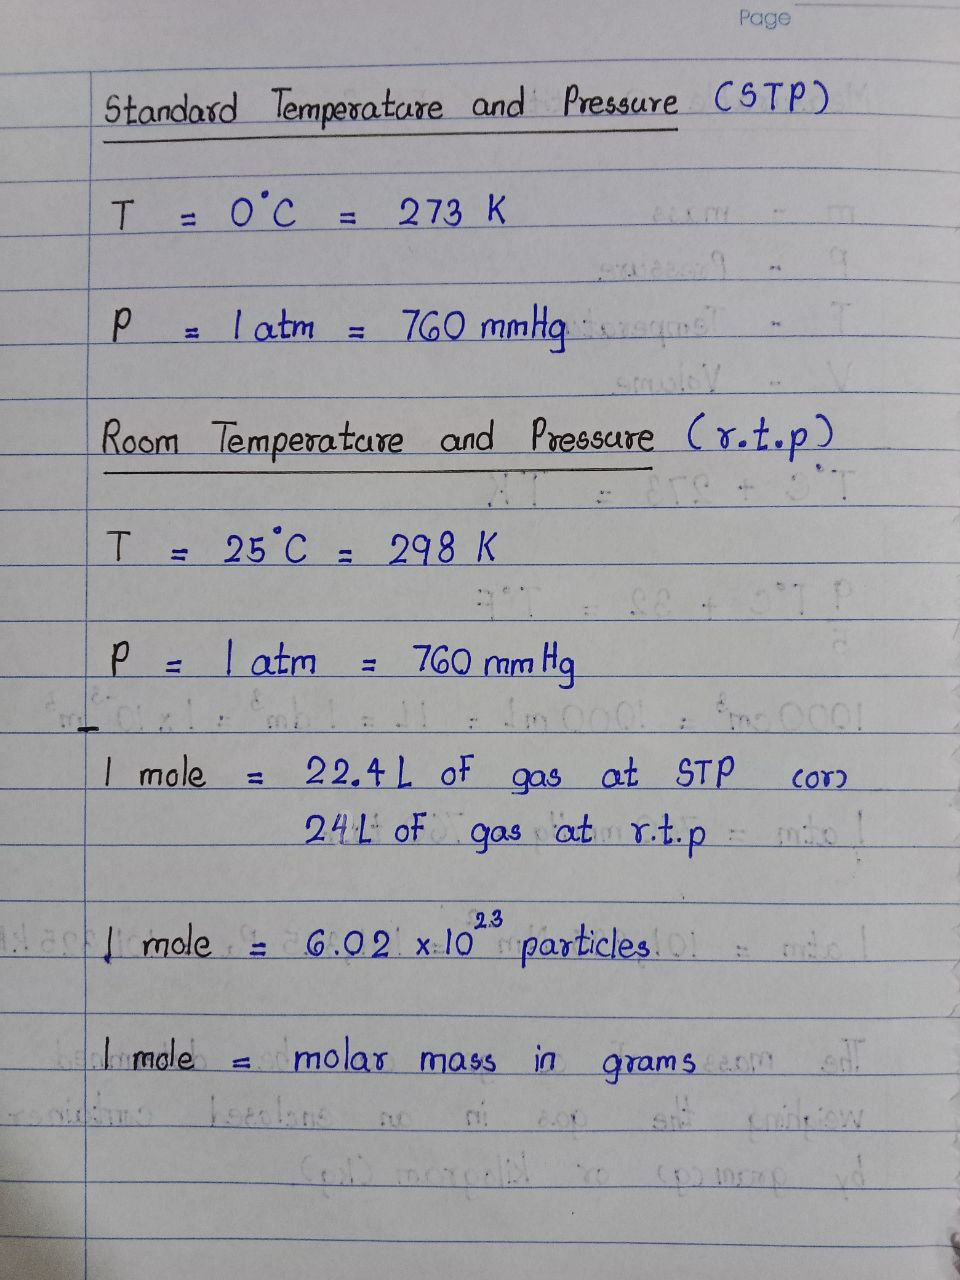 Page
Standard Temperature and Pressure (STP)
T = 0°C = 273 K
P = 1 atm = 760 mmHg
Room Temperature and Pressure (r.t.p)
T = 25°C = 298 K
P = 1 atm = 760 mm Hg
1 mole = 22.4 L of gas at STP (or)
24 L of gas at r.t.p
1 mole = 6.02 x 10²³ particles
1 mole = molar mass in grams